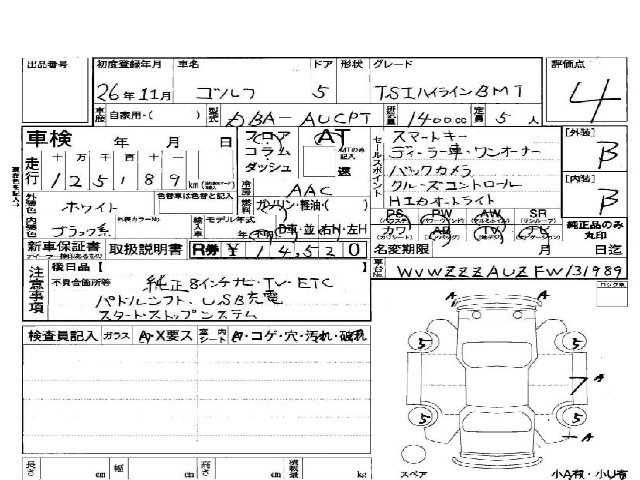 出品番号 初度登録年月 車名 ドア 形状 グレード 評価点
26年11月 ゴルフ 5 TSIハイラインBMT 4
車歴 自家用・( ) 型式 DBA-AUCPT 排気量 1400cc 定員 5人
車検 年 月 日 フロア コラム ダッシュ AT ATのみ記入 速
走行 十 万 千 百 十 一 125189 km
冷房 AAC
外装色 ホワイト 色替車は色替と記入 燃料 ガソリン・軽油・( )
内装色 ブラック系 外装カラーNo. 輸入車 モデル年式 年 D車・並 右H・左H
新車保証書 取扱説明書 R券 ¥14,520
セールスポイント
スマートキー
ディーラー車・ワンオーナー
バックカメラ
クルーズコントロール
HIDオートライト
PS PW AW SR
カワ AB TV
[外装] B
[内装] B
純正品のみ丸印
名変期限 月 日迄
車台No. WVWZZZAUZFW131989
注意事項 後日品【 】
不具合箇所等 純正8インチナビ・TV・ETC
パドルシフト、USB充電
スタートストップシステム
検査員記入 ガラス A・X要ス 室内シート A・コゲ・穴・汚れ・破れ
長さ cm 幅 cm 高さ cm 積載量 kg
A A
5 5
7 A
5 5
A
スペア 小A有・小U有